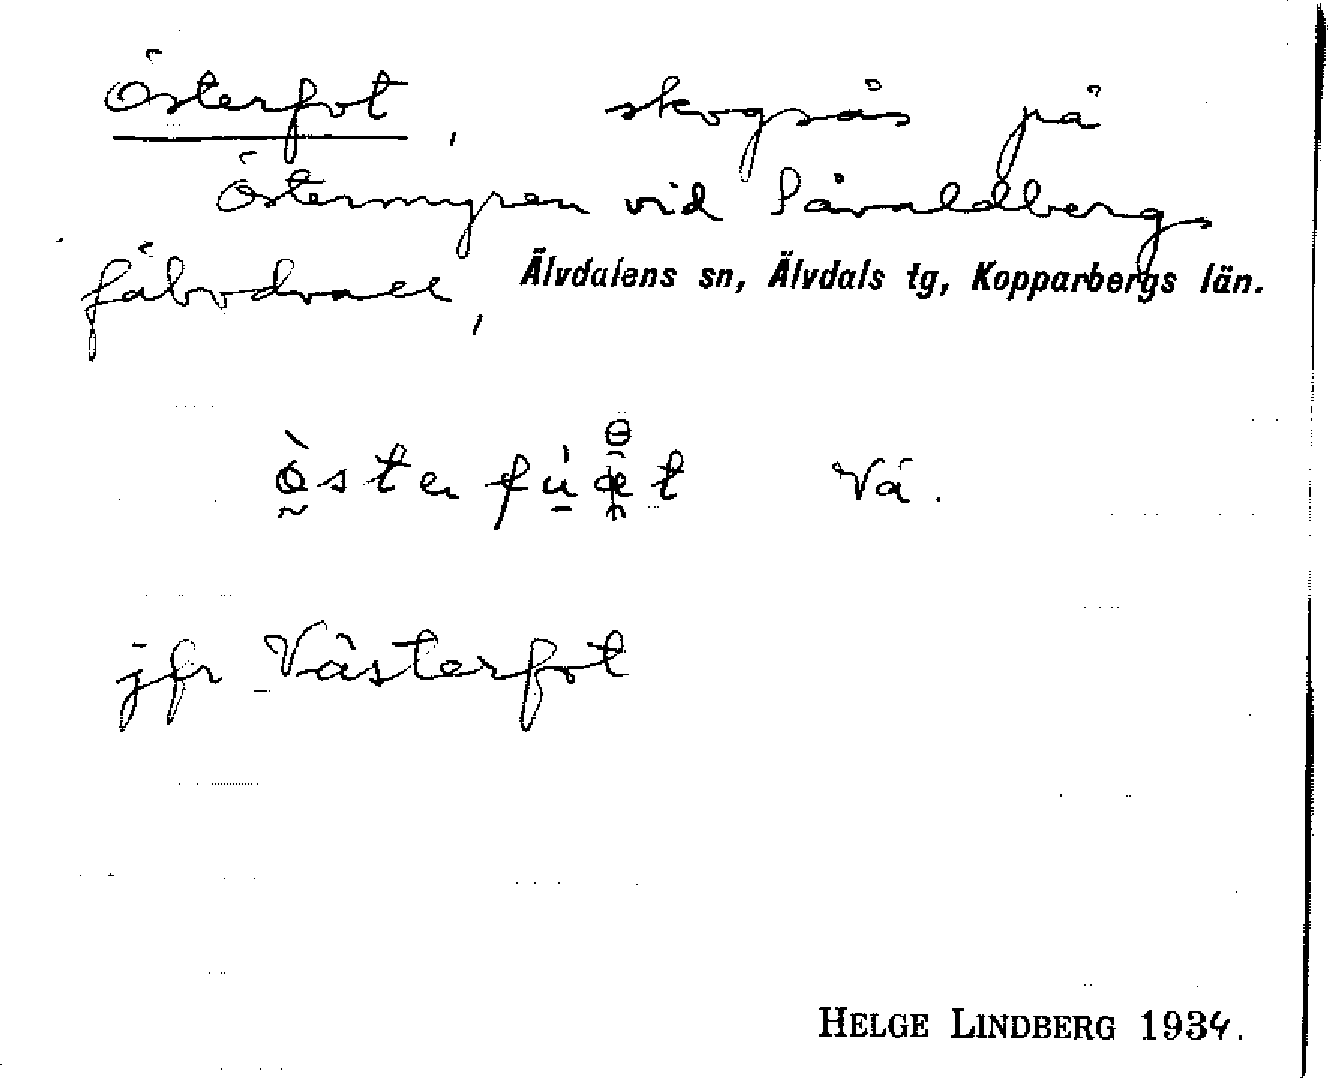 Österfot, skogsås på
Östermyren vid Påvaldbergs
fäbodvall, Älvdalens sn, Älvdals tg, Kopparbergs län.
Vä.
jfr Västerfot
HELGE LINDBERG 1934.